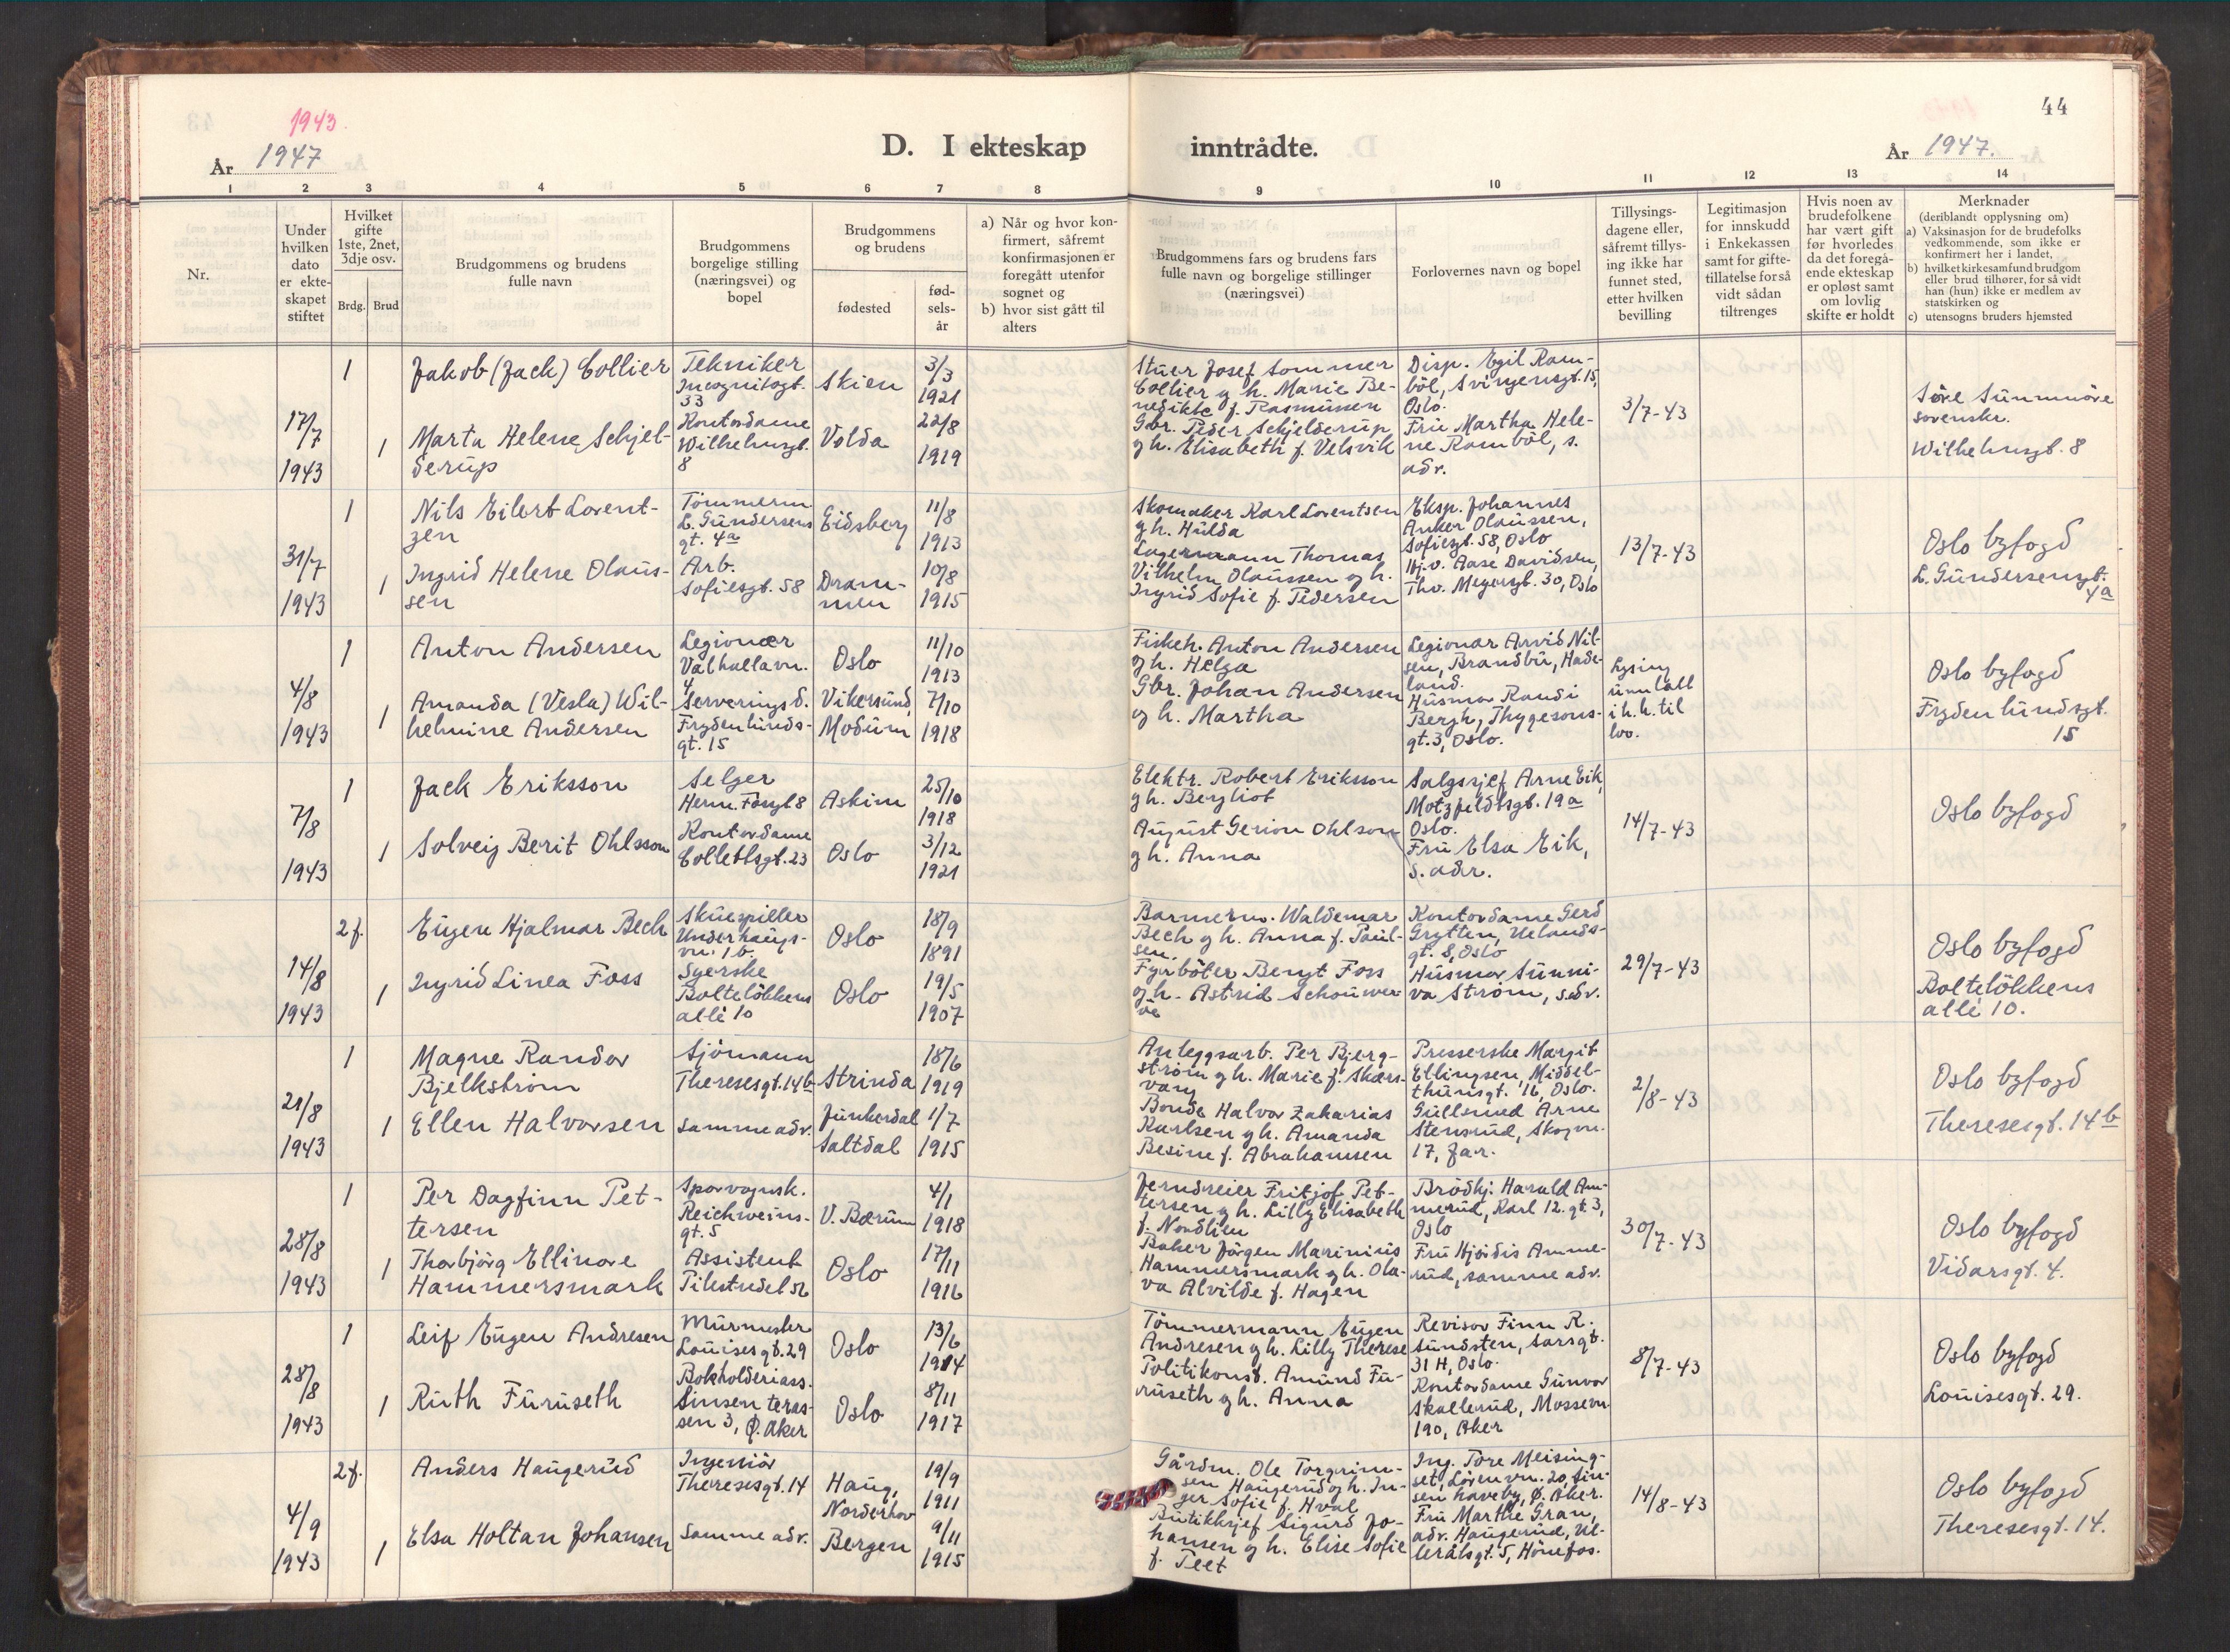 1943
År 1947
D. I ekteskap inntrådte.
År 1947.
44
1 2 3 4 5 6 7 8 9 10 11 12 13 14
Nr.
Under hvilken dato er ekteskapet stiftet
Hvilket gifte 1ste, 2net, 3dje osv.
Brdg. Brud
Brudgommens og brudens fulle navn
Brudgommens borgelige stilling (næringsvei) og bopel
Brudgommens og brudens
fødested
fødselsår
a) Når og hvor konfirmert, såfremt konfirmasjonen er foregått utenfor sognet og
b) hvor sist gått til alters
Brudgommens fars og brudens fars fulle navn og borgelige stillinger (næringsvei)
Forlovernes navn og bopel
Tillysingsdagene eller, såfremt tillysing ikke har funnet sted, etter hvilken bevilling
Legitimasjon for innskudd i Enkekassen samt for giftetillatelse for så vidt sådan tiltrenges
Hvis noen av brudefolkene har vært gift før hvorledes da det foregående ekteskap er opløst samt om lovlig skifte er holdt
Merknader
(deriblandt opplysning om)
a) Vaksinasjon for de brudefolks vedkommende, som ikke er konfirmert her i landet,
b) hvilket kirkesamfund brudgom eller brud tilhører, for så vidt han (hun) ikke er medlem av statskirken og
c) utensogns bruders hjemsted
17/7
1943
1
Jakob (Jack) Collier
Tekniker
Incognitogt.
33
Skien
3/3
1921
1
Marta Helene Schjel-
derup
Kontordame
Wilhelmsgt.
8
Volda
22/8
1919
Stuer Josef Sommer
Collier g h. Marie Be-
nedikte f. Rasmussen
Gbr. Peder Schjelderup
g h. Elisabeth f. Velsvik
Disp. Egil Ram-
böl, Svingensgt. 15,
Oslo.
Fru Martha Hele-
ne Ramböl, s.
adr.
3/7-43
Söre Sunnmöre
sorenskr.
Wilhelmsgt. 8
31/7
1943
1
Nils Eilert Lorent-
zen
Tömmerm
L. Gundersens
gt. 4a
Eidsberg
11/8
1913
1
Ingrid Helene Olaus-
sen
Arb.
Sofiesgt. 58
Dram-
men
10/8
1915
Skomaker Karl Lorentsen
g h. Hulda
Lagermann Thomas
Vilhelm Olaussen og h.
Ingrid Sofie f. Pedersen
Eksp. Johannes
Anker Olaussen,
Sofiesgt. 58, Oslo
Hj.v. Aase Davidsen,
Thv. Meyersgt. 30, Oslo
13/7-43
Oslo byfogd
L. Gundersensgt.
4a
4/8
1943
1
Anton Andersen
Legionær
Valhallavn.
4
Oslo
11/10
1913
1
Amanda (Vesla) Wil-
helmine Andersen
Serveringsd.
Frydenlunds-
gt. 15
Vikersund,
Modum
7/10
1918
Fiskeh. Anton Andersen
g h. Helga
Gbr. Johan Andersen
og h. Martha
Legionær Arvid Nil-
sen, Brandbu, Hade-
land.
Husmor Randi
Bergh, Thygesons-
gt. 3, Oslo.
Lysing
unnlatt
i h.h. til
lov.
Oslo byfogd
Frydenlundsgt.
15
7/8
1943
1
Jack Eriksson
Selger
Herm. Fossgt 8
Askim
25/10
1918
1
Solveig Berit Ohlsson
Kontordame
Collettsgt. 23
Oslo
3/12
1921
Elektr. Robert Eriksson
g h. Bergliot
August Gerion Ohlson
g h. Anna
Salgssjef Arne Eik,
Motzfeldtsgt. 19a
Oslo.
Fru Elsa Eik,
s. adr.
14/7-43
Oslo byfogd
14/8
1943
2 f.
Eugen Hjalmar Bech
Skuespiller
Underhaugs-
vn. 1 b.
Oslo
18/9
1891
1
Ingrid Linea Foss
Syerske
Bolteløkkens
allé 10
Oslo
19/5
1907
Barmern. Waldemar
Bech g h. Anna f. Paul-
sen.
Fyrböter Bengt Foss
og h. Astrid Schouwer
ve
Kontordame Gerd
Grytten, Uelands-
gt. 8, Oslo
Husmor Sunni-
va Ström, s.adr.
29/7-43
Oslo byfogd
Boltelökkens
allé 10.
21/8
1943
1
Magne Randor
Bjelkström
Sjömann
Theresesgt. 14b
Strinda
18/6
1919
1
Ellen Halvorsen
samme adr.
Junkerdal
Saltdal
1/7
1915
Anleggsarb. Per Bjerg-
ström g h. Marie f. Skærs-
vang
Bonde Halvor Zakarias
Karlsen g h. Amanda
Besine f. Abrahamsen
Presserske Margit
Ellingsen, Middel-
thunsgt. 16, Oslo.
Gullsmed Arne
Stensrud, Skogvn.
17, Jar.
2/8-43
Oslo byfogd
Theresesgt. 14b
28/8
1943
1
Per Dagfinn Pet-
tersen
Sporvognsk.
Reichweins-
gt. 5
V. Bærum
4/1
1918
1
Thorbjörg Ellinore
Hammersmark
Assistent
Pilestredet 52
Oslo
17/11
1916
Jerndreier Fritjof Pet-
tersen g h. Lilly Elisabeth
f. Nordlien
Baker Jörgen Marinius
Hammersmark g h. Ola-
va Alvilde f. Hagen
Brödkj. Harald Am-
merud, Karl 12. gt 3,
Oslo
Fru Hjördis Amme-
rud, samme adr.
30/7-43
Oslo byfogd
Vidarsgt. 4.
28/8
1943
1
Leif Eugen Andresen
Murmester
Louisesgt. 29
Oslo
13/6
1914
1
Ruth Furuseth
Bokholderiass.
Sinsen teras-
sen 3, Ø. Aker
Oslo
8/11
1917
Tömmermann Eugen
Andresen g h. Lilly Therese
Politikonst. Amund Fu-
ruseth g h. Anna
Revisor Finn R.
Sundsten, Sarsgt.
31 H, Oslo.
Kontordame Gunvor
Skallerud, Mossevn.
190, Aker
8/7-43
Oslo byfogd
Louisesgt. 29.
4/9
1943
2 f.
Anders Haugerud
Ingeniör
Theresesgt. 14
Haug,
Norderhov
19/9
1911
1
Elsa Holtan Johansen
samme adr.
Bergen
9/11
1915
Gårdm. Ole Torgrim-
sen Haugerud og h. In-
ger Sofie f. Hval
Butikksjef Sigurd Jo-
hansen g h. Elise Sofie
f. Teet
Ing. Tore Meising-
set, Lörenvn. 20, Sin-
sen haveby, Ø. Aker.
Fru Marthe Gran,
adr. Haugerud, Ul-
lerålsgt. 5, Hönefos.
14/8-43
Oslo byfogd
Theresesgt. 14.